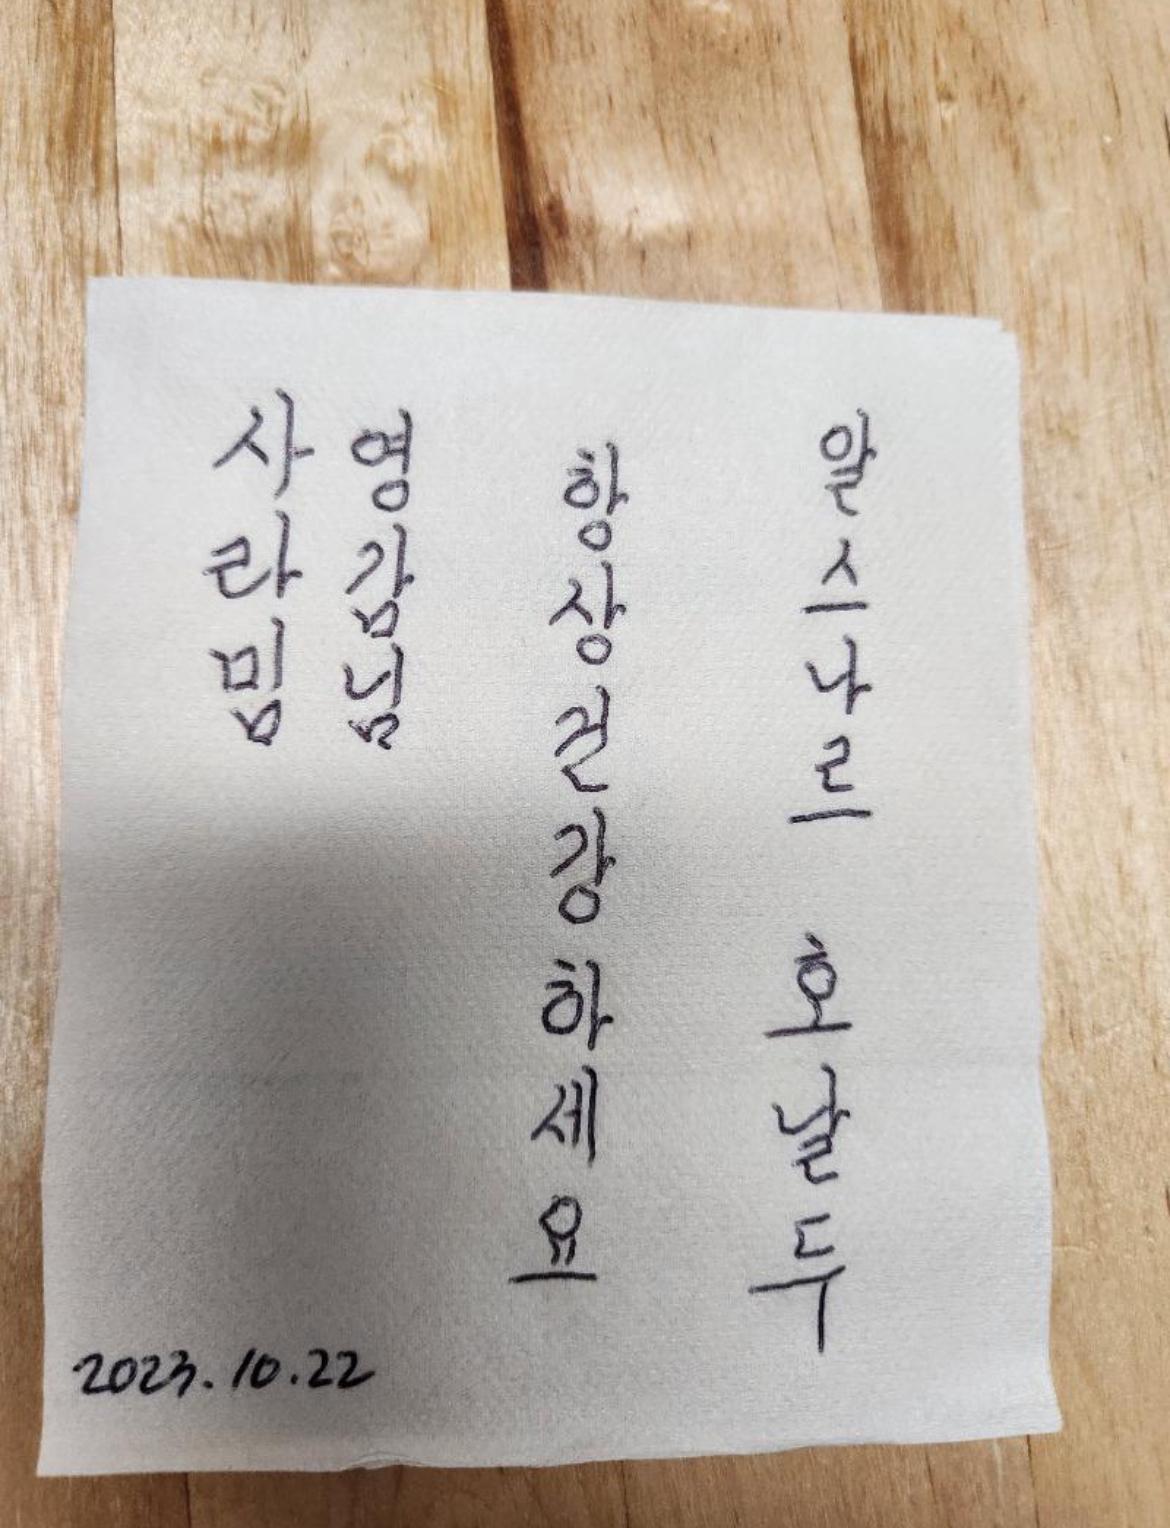 알스나르 호날두
항상건강하세요
영감님
사라밈
2023.10.22